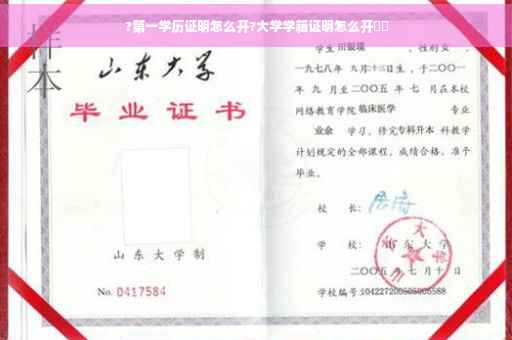 ?第一学历证明怎么开?大学学籍证明怎么开
样本
山东大学
毕业证书
山东大学制
No. 0417584
学生 田银瑞 ,性别女,
一九七八年 九月十三日生,于二〇〇一
年 九 月至二〇〇五 年 七 月在本校
网络教育学院 临床医学 专业
业余 学习,修完专科升本 科教学
计划规定的全部课程,成绩合格,准予
毕业。
校 长:
学 校: 山东大学
二〇〇五 年 七 月 十 日
学校编号:104227200505005588